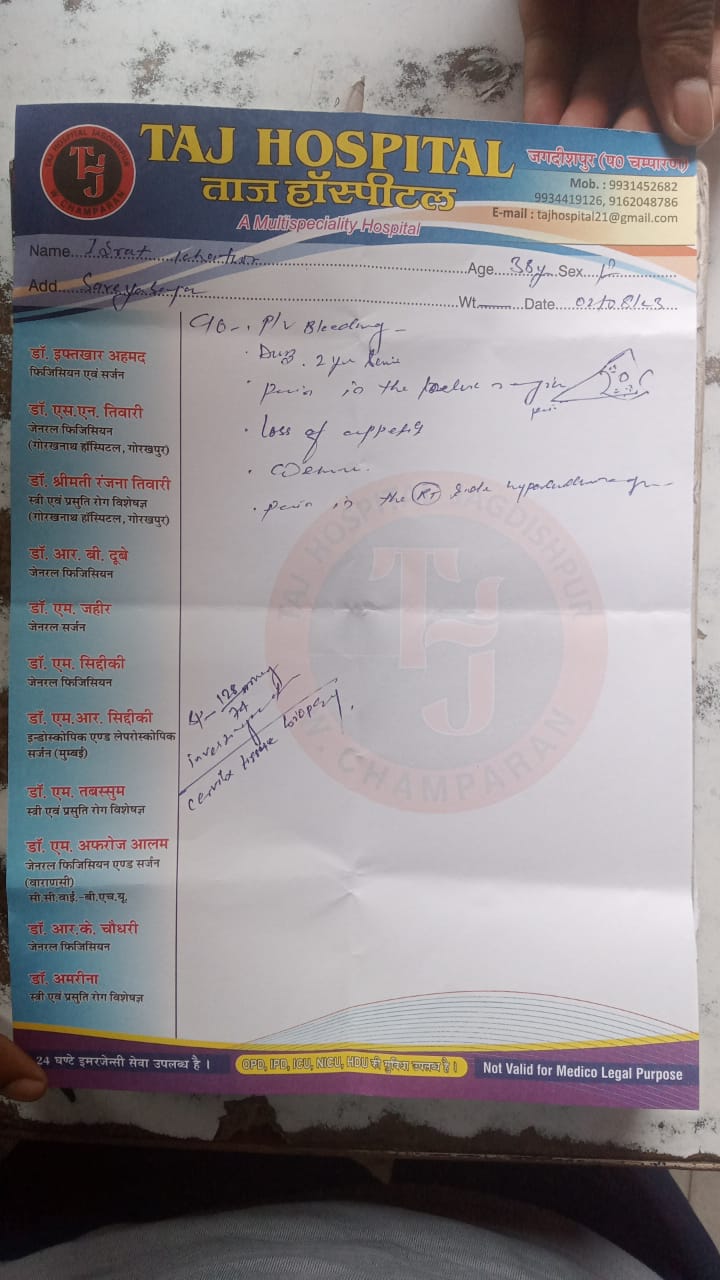 TAJ HOSPITAL JAGDISHPUR
W. CHAMPARAN
TAJ HOSPITAL
ताज हॉस्पीटल
A Multispeciality Hospital
जगदीशपुर (प० चम्पारण)
Mob. : 9931452682
9934419126, 9162048786
E-mail : tajhospital21@gmail.com
Name
Age 38 yr Sex
Add
Wt. Date
C/o - . P/v Bleeding -
2 yr
pain in the region
Loss of
pain in the RT side
128
74
cervix tissue biopsy.
डॉ. इफ्तखार अहमद
फिजिसियन एवं सर्जन
डॉ. एस.एन. तिवारी
जेनरल फिजिसियन
(गोरखनाथ हॉस्पिटल, गोरखपुर)
डॉ. श्रीमती रंजना तिवारी
स्त्री एवं प्रसुति रोग विशेषज्ञ
(गोरखनाथ हॉस्पिटल, गोरखपुर)
डॉ. आर. बी. दूबे
जेनरल फिजिसियन
डॉ. एम. जहीर
जेनरल सर्जन
डॉ. एम. सिद्दीकी
जेनरल फिजिसियन
डॉ. एम.आर. सिद्दीकी
इन्डोस्कोपिक एण्ड लेपरोस्कोपिक
सर्जन (मुम्बई)
डॉ. एम. तबस्सुम
स्त्री एवं प्रसुति रोग विशेषज्ञ
डॉ. एम. अफरोज आलम
जेनरल फिजिसियन एण्ड सर्जन
(वाराणसी)
सी.सी.वाई.-बी.एच.यू.
डॉ. आर.के. चौधरी
जेनरल फिजिसियन
डॉ. अमरीना
स्त्री एवं प्रसुति रोग विशेषज्ञ
TAJ HOSPITAL JAGDISHPUR
W. CHAMPARAN
24 घण्टे इमरजेन्सी सेवा उपलब्ध है ।
OPD, IPD, ICU, NICU, HDU की सुविधा उपलब्ध है ।
Not Valid for Medico Legal Purpose